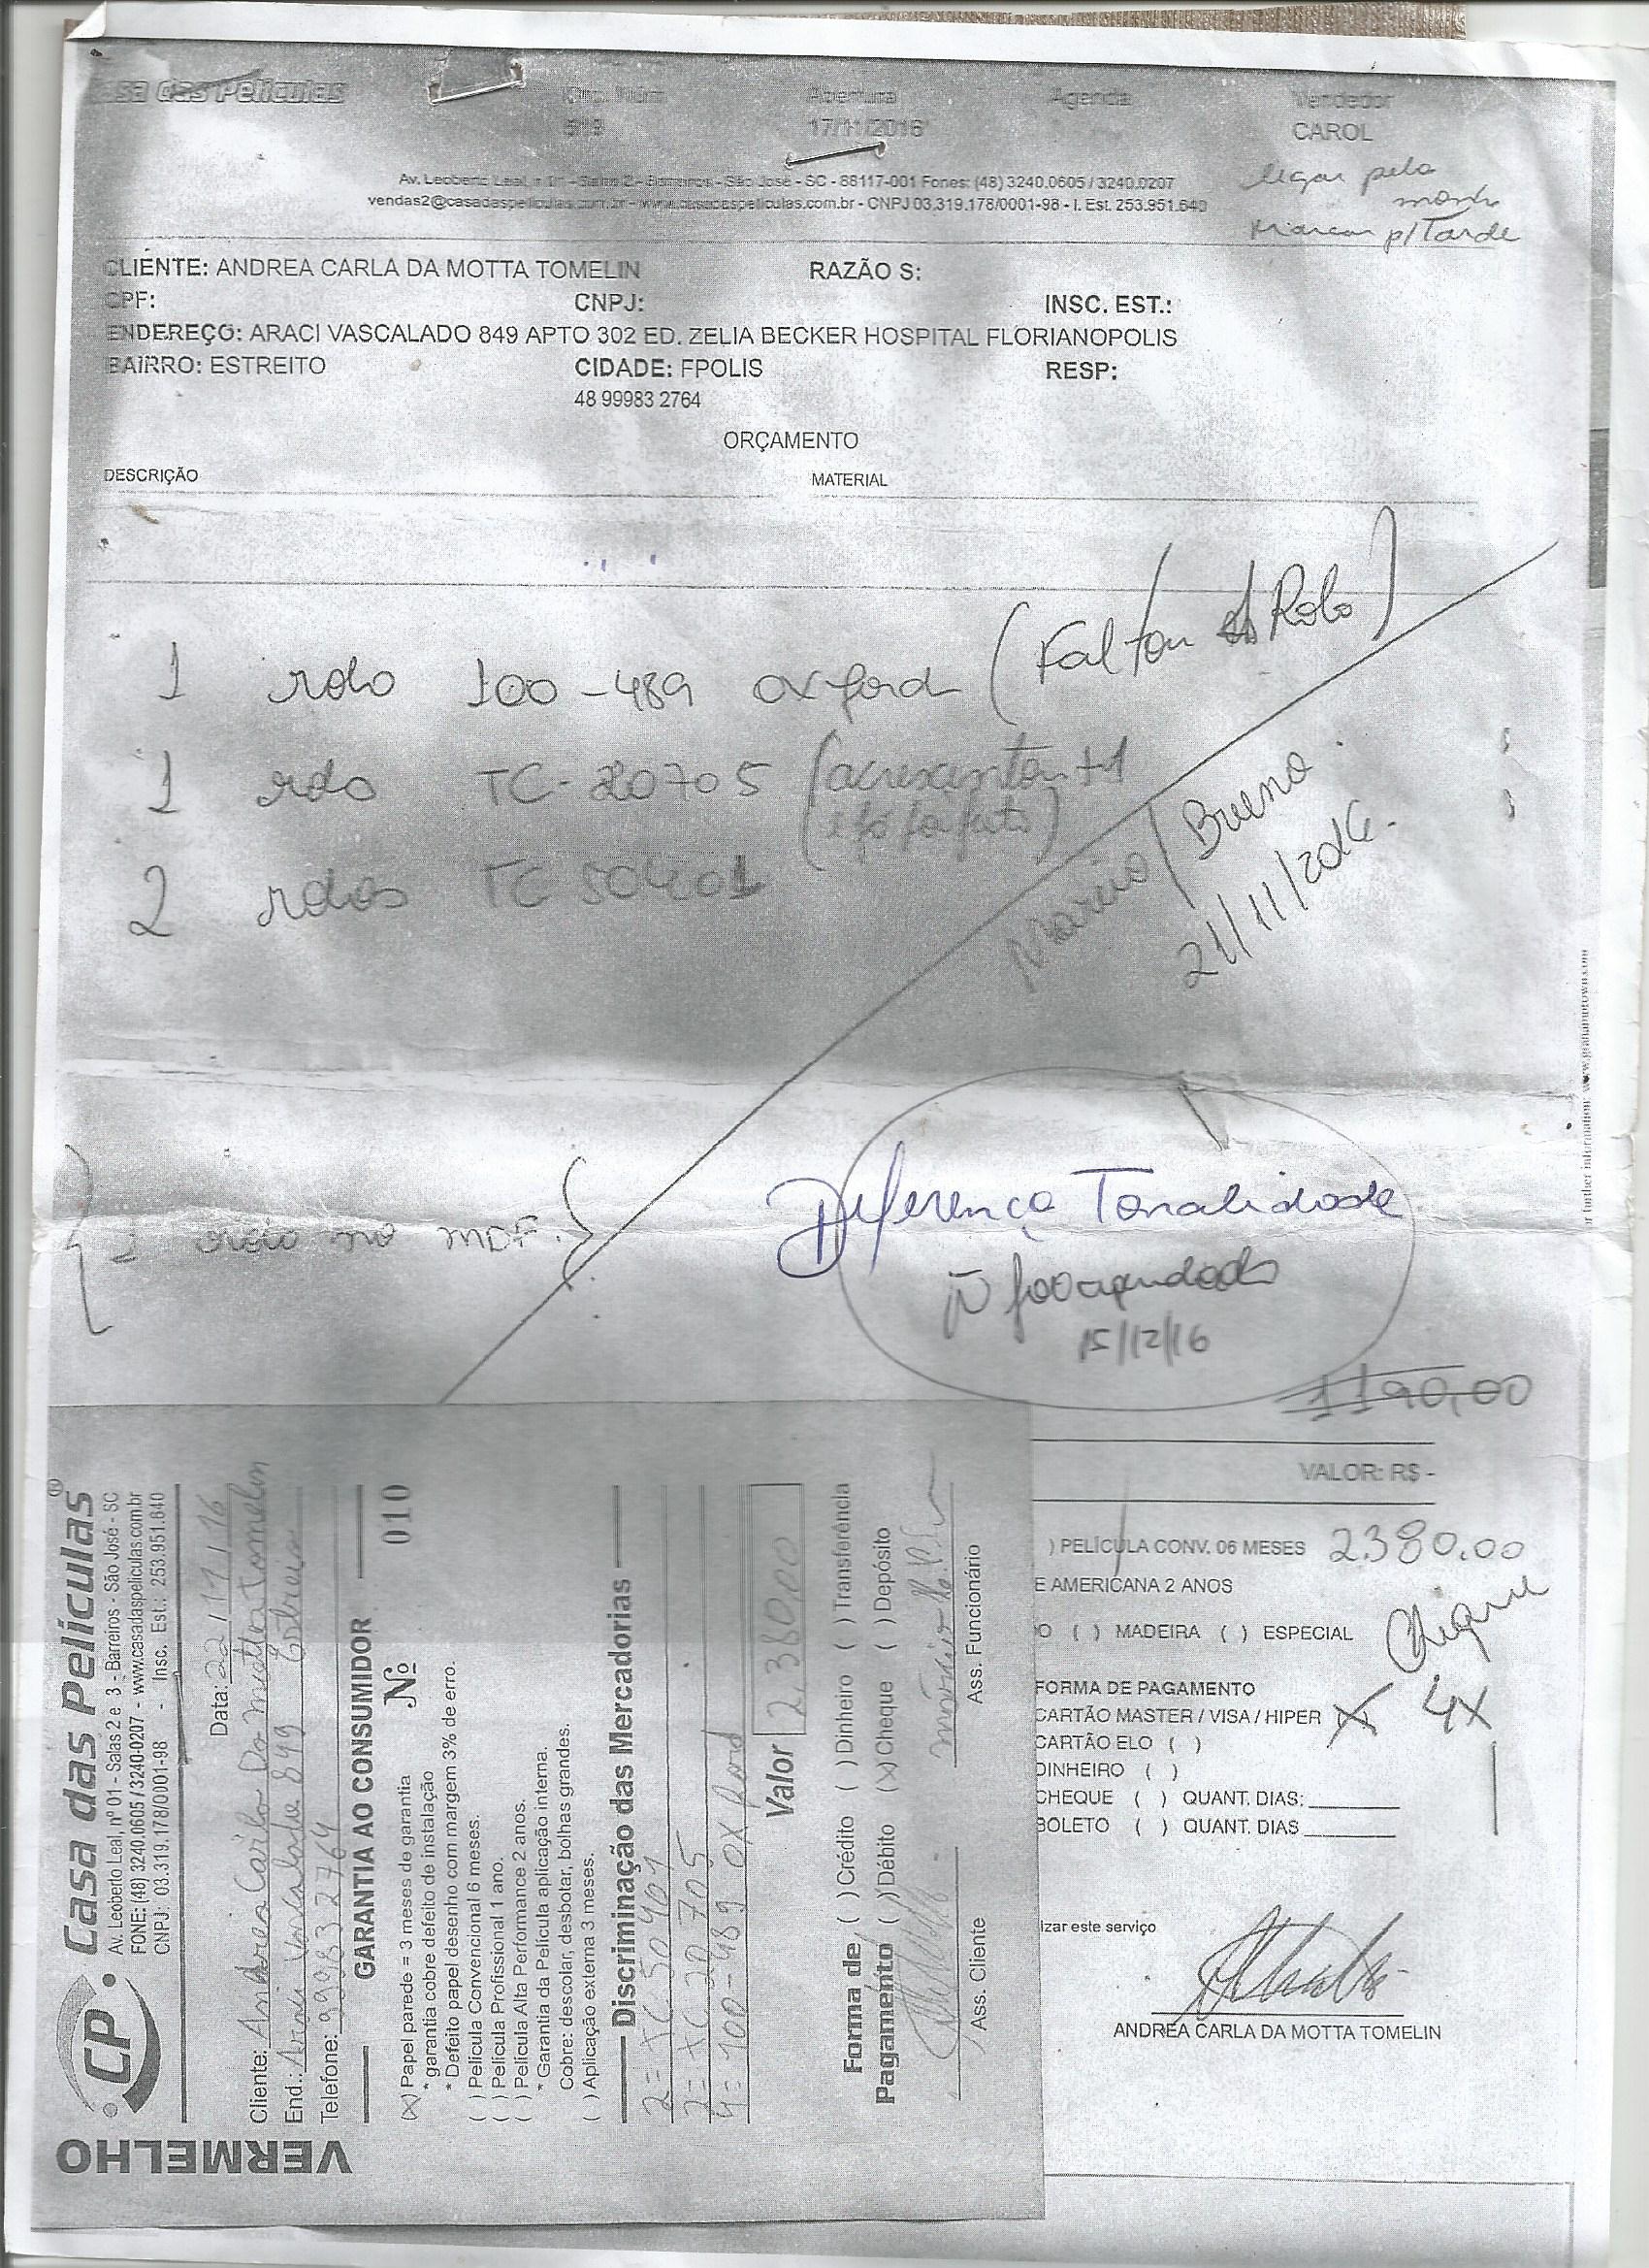 Casa das Películas
Abertura
Agenda
Vendedor
519
17/11/2016
CAROL
ligar pela
Marcar p/ Tarde
Av. Leoberto Leal, n 01 - Salas 2 - Barreiros - São José - SC - 88117-001 Fones: (48) 3240.0605 / 3240.0207
vendas2@casadaspeliculas.com.br - www.casadaspeliculas.com.br - CNPJ 03.319.178/0001-98 - I. Est. 253.951.640
CLIENTE: ANDREA CARLA DA MOTTA TOMELIN RAZÃO S:
CPF: CNPJ: INSC. EST.:
ENDEREÇO: ARACI VASCALADO 849 APTO 302 ED. ZELIA BECKER HOSPITAL FLORIANOPOLIS
BAIRRO: ESTREITO CIDADE: FPOLIS RESP:
48 99983 2764
ORÇAMENTO
DESCRIÇÃO MATERIAL
1 rolo 100-489 oxford (Faltou Rolo)
1 rolo TC-20705 (acrescentar +1
e já foi feito)
2 rolos TC 50401
Marcio / Bruno
21/11/2016.
rolo no MDF.
Diferença Tonalidade
15/12/16
1190,00
VALOR: R$ -
) PELÍCULA CONV. 06 MESES 2.380,00
E AMERICANA 2 ANOS
O ( ) MADEIRA ( ) ESPECIAL
Cheque
4X
FORMA DE PAGAMENTO
CARTÃO MASTER / VISA / HIPER
CARTÃO ELO ( )
DINHEIRO ( )
CHEQUE ( ) QUANT. DIAS:
BOLETO ( ) QUANT. DIAS
izar este serviço
ANDREA CARLA DA MOTTA TOMELIN
r further information: www.grahambrown.com
VERMELHO
CP
Casa das Películas®
Av. Leoberto Leal, nº 01 - Salas 2 e 3 - Barreiros - São José - SC
FONE: (48) 3240.0605 / 3240-0207 - www.casadaspeliculas.com.br
CNPJ: 03.319.178/0001-98 - Insc. Est.: 253.951.640
Data: 22/11/16
Cliente: Andreia Carla Da Motta Tomelin
End.: Araci Vascalado 849 Estreito
Telefone: 99983 2764
GARANTIA AO CONSUMIDOR
Nº 010
(X) Papel parede = 3 meses de garantia
* garantia cobre defeito de instalação
* Defeito papel desenho com margem 3% de erro.
( ) Película Convencional 6 meses.
( ) Película Profissional 1 ano.
( ) Película Alta Performance 2 anos.
* Garantia da Película aplicação interna.
Cobre: descolar, desbotar, bolhas grandes.
( ) Aplicação externa 3 meses.
Discriminação das Mercadorias
2 = TC 50401
2 = TC 20705
4 = 100-489 oxford
Valor 2.380,00
Forma de Pagamento
( ) Crédito ( ) Dinheiro ( ) Transferência
( ) Débito (X) Cheque ( ) Depósito
Ass. Cliente Ass. Funcionário